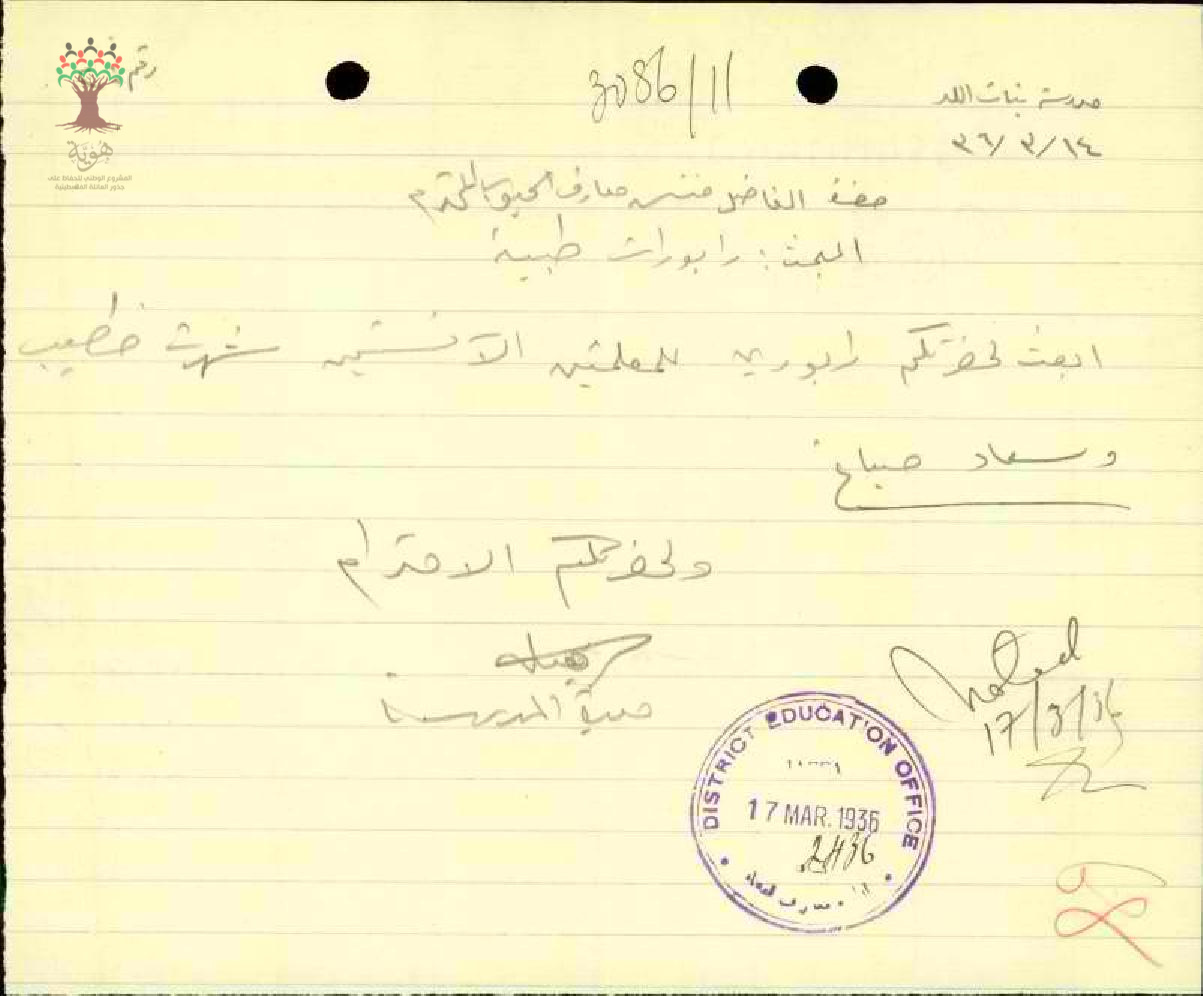 رقم
3086/11
مدرسة بنات اللد
٣٦/٣/١٤
هويّة
المشروع الوطني للحفاظ على
جذور العائلة الفلسطينية
حضرة الفاضل مفتش معارف الجنوب المحترم
المبحث: رابورات طبية
ابعث لحضرتكم رابوري للمعلمتين الآنستين شهرت خطيب
وسعاد صباغ
ولحضرتكم الاحترام
مديرة المدرسة
Noted
17/3/36
DISTRICT EDUCATION OFFICE
17 MAR. 1936
2436
معارف